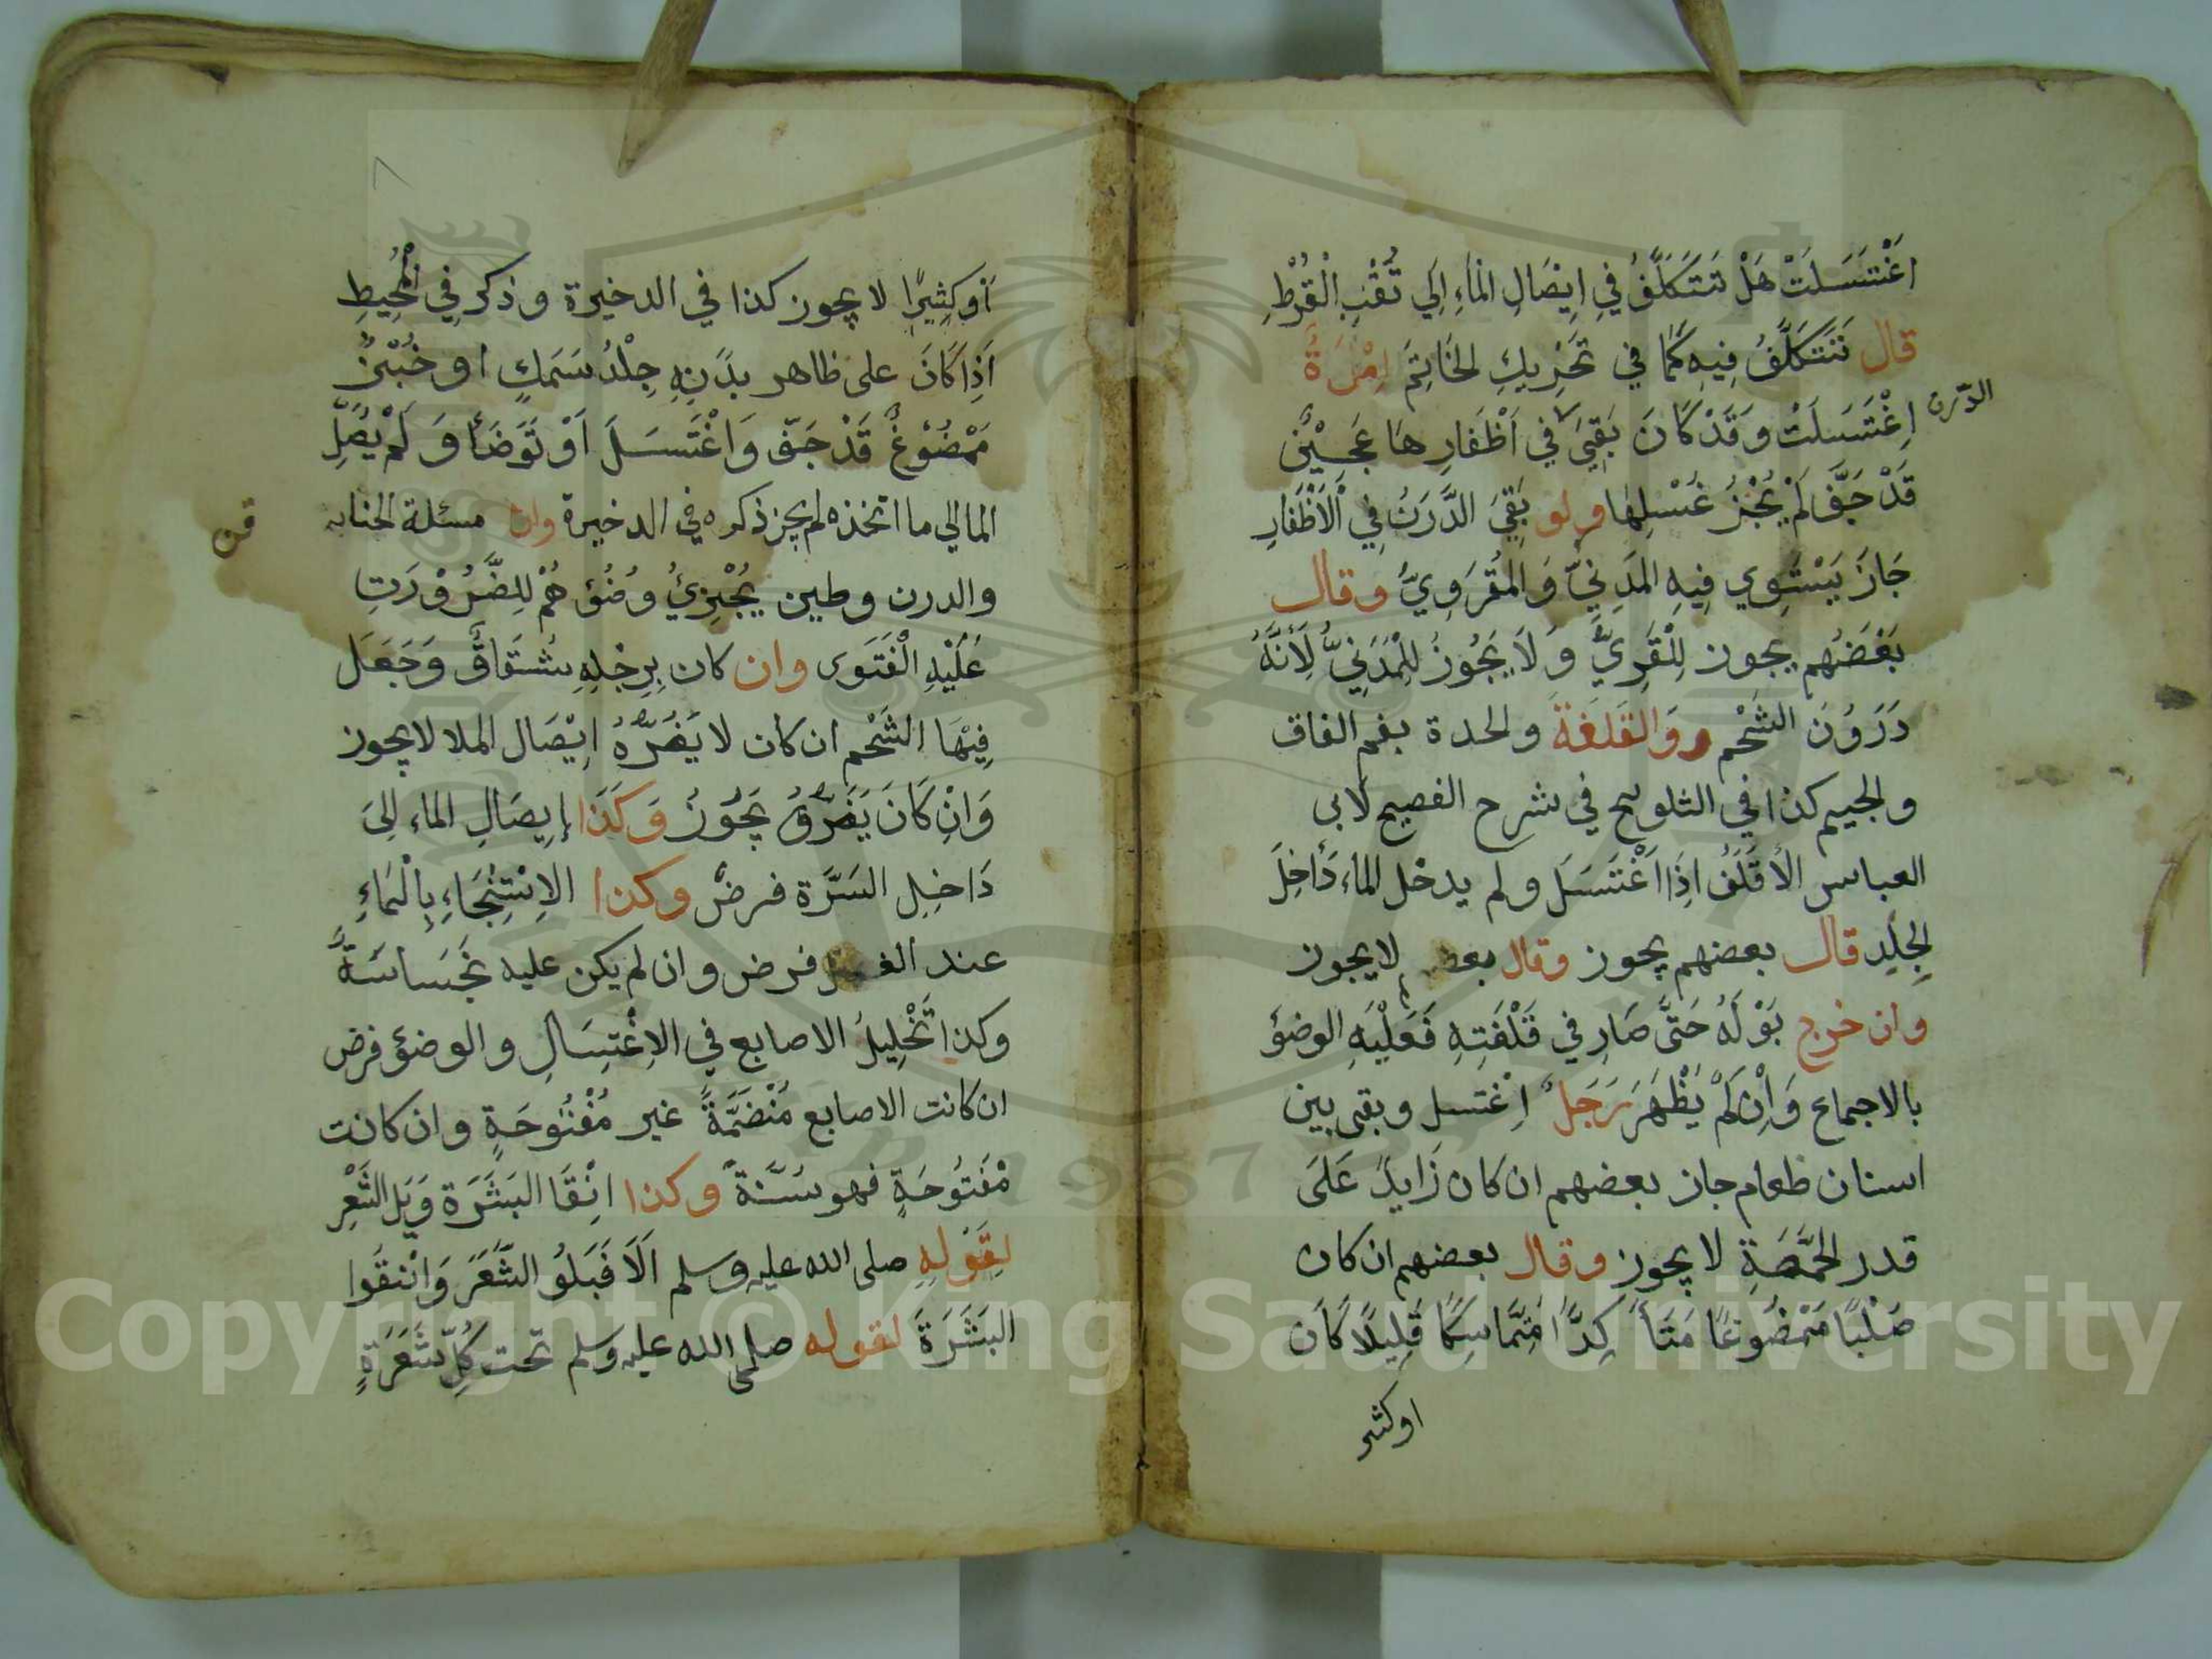 اغْتَسَلَتْ هَلْ تَتَكَلَّفُ فِي اِيْصَالِ الْمَاءِ اِلَي ثُقْبِ الْقُرْطِ
قال تَتَكَلَّفُ فِيهِ كَمَا في تَحْرِيكِ الخَاتِمِ اِمْرَةٌ
اِغْتَسَلَتْ وَقَدْ كَانَ بَقِيَ في اَظْفَارِهَا عَجِيْنٌ
الدّرن
قَدْ جَفَّ لَمْ يُجْزُ غُسْلِهَا ولو بَقِيَ الدَّرَنُ فِي اْلاَظْفَارِ
جَازَ يَسْتَوِي فِيهِ المَدَنِيّ وَالمَقْرَوِيُّ وقال
بَعْضُهُم يجوز لِلْقَرِيِّ وَلاَ يَجُوزُ لِلْمُدَنِيُّ لِاَنَّهُ
دَرَوُنَ الشَحْمِ وَالقَلَفَةَ والحدة بفم الفاق
والجيم كذا في الثلويح في شرح الفصيح لابي
العباس الأقَلَفُ اِذَا اَغْتَسَلَ ولم يدخل الماء دَاخِلَ
الجِلِد قال بعضهم يجوز وقال بعض لايجوز
وان خرج بَوْلَهُ حَتَّى صَارِ في قَلْفَتِهِ فَعَلَيْهِ الوضؤ
بالاجماع وَاِنْ لَمْ يَظْهَرَ رَجَلٌ اِغْتسل وبقى بين
اسنان طعام جاز بعضهم ان كان زَايدً عَلَى
قدر الحِمَّصَةِ لا يجوز وقال بعضهم ان كان
صَلْبًا مَمْضُوغًا مَتَأ كِدًّا مُتَمَاسِكًا قَلِيلًا كَانَ
اوكثير
اَوكَثِيرًا لا يجوز كذا في الدخيرة وذكر فِي الْمُحِيطِ
اَذِا كَانَ على ظاهر بدَنِهِ جِلْدُ سَمَكٍ او خُبْزٌ
مَمْضُوْغٌ قَدْ جَفّ وَاغْتَسَلَ اَوْ تَوَضَأ وَلَمْ يُصِلِ
المالي ما اتخذه لم يجز ذكره في الدخيرة وان مسئلة الحنابه
والدرن وطين يُجْزِيُ وُضُؤ هُمْ لِلِضَّرُوْرَتِ
عُلَيْهِ الْفَتَوى وان كان بِرِجْلِهِ شُتَقاقٌ وَجَعَل
فِيْهَا الشَحْم ان كان لا يَضُرُّهُ اِيْصَال الملا لايجوز
وَانِ كَانَ يَضُرُّهُ يَجُوزُ وَكَذَا اِيصَالِ الماء اِلىَ
دَاخِلِ السَرَّة فرضٌ وكذا الاِسْتِنْجَاءِ بِالْمَاءِ
عند فرض وان لم يكن عليه نَجَساسَةً
وكذا تَخْلِيلُ الاصابع في الاِغْتِسَالِ والوضؤ فرض
ان كانت الاصابع مُنْضَمَّةً غير مُفْتُوحَةٍ وان كانت
مْفَتُوحَةٍ فهو سَنَّةً وكذا انِقَا البَشَرَة وَبَل الشَّعْرِ
لِقَوْلِهِ صلى الله عليه وسلم اَلَا فَبَلوُ الشَّعَرَ وَانْقَوا
البَشَرَةَ لقوله صلى الله عليه وسلم تحت كُلِّ شَعَرَةٍ
Copyright © King Saud University
1957